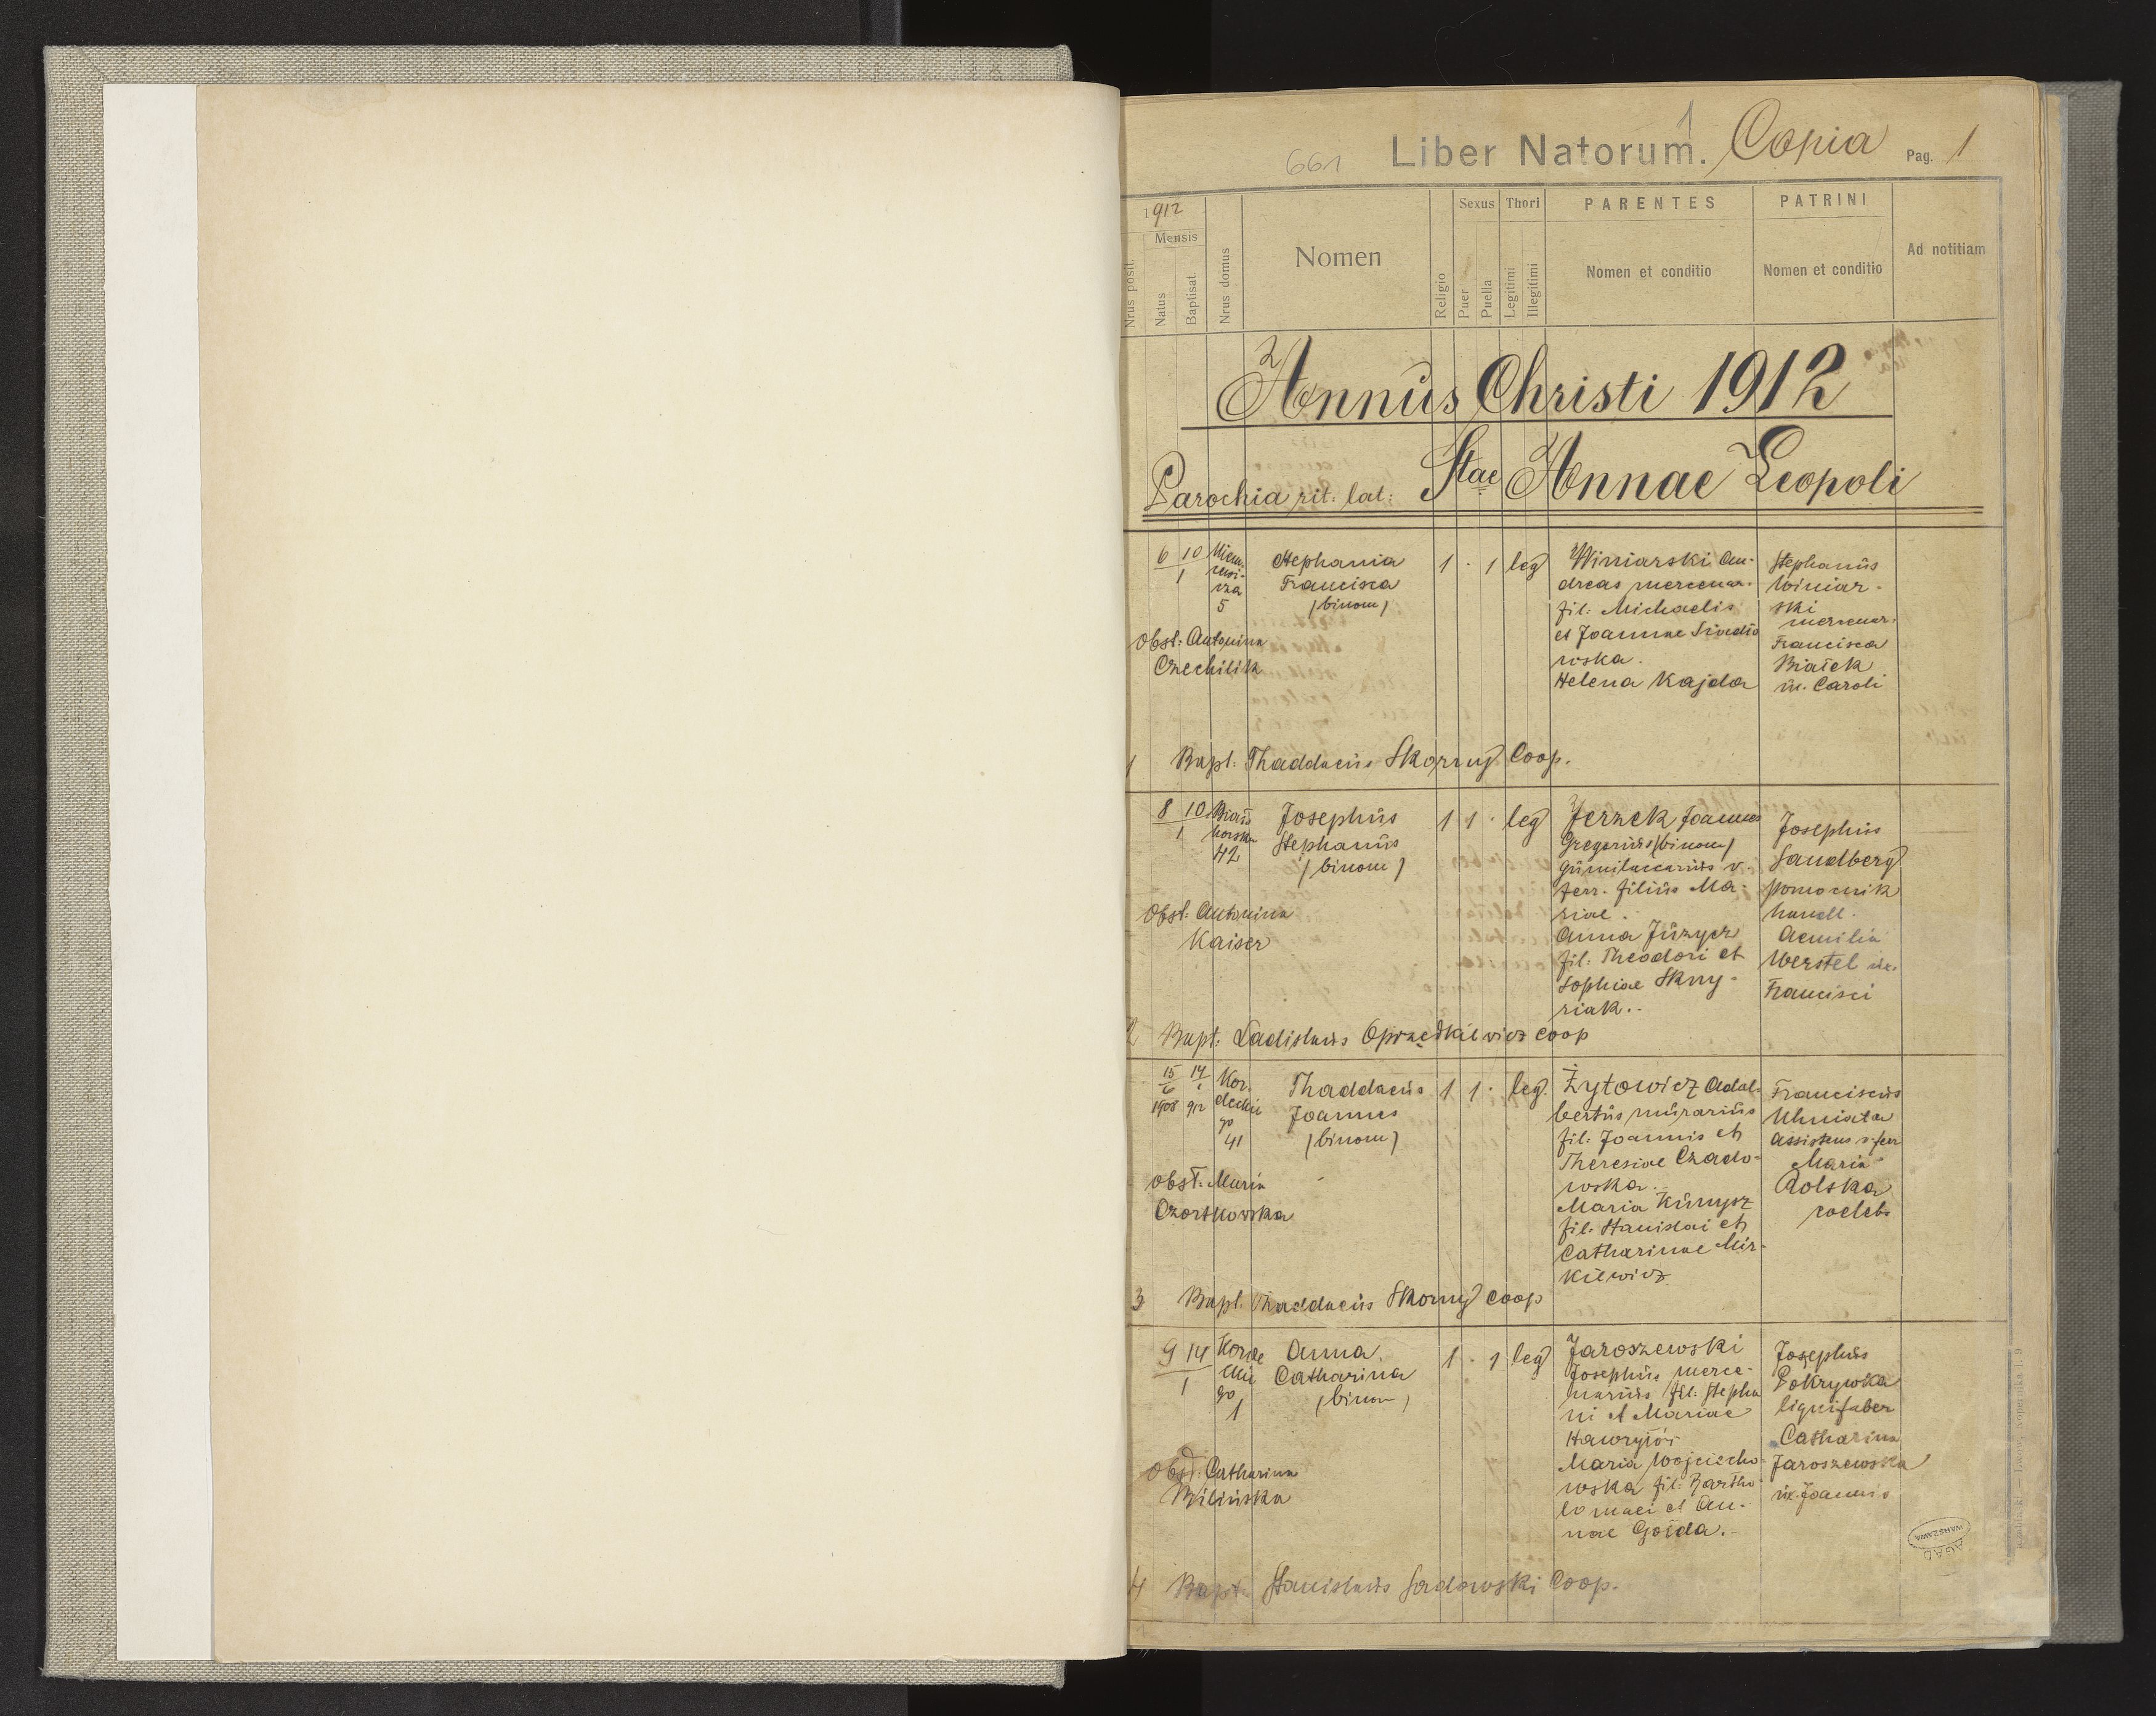 1
661 Liber Natorum. Copia Pag. 1
1912
Mensis
Nrus posit.
Natus
Baptisat.
Nrus domus
Nomen
Religio
Sexus
Puer
Puella
Thori
Legitimi
Illegitimi
PARENTES
Nomen et conditio
PATRINI
Nomen et conditio
Ad notitiam
Annus Christi 1912
Parochia rit: lat: Stae Annae Leopoli
6 10
1
5
Stephania
Francisca
(binom)
1 · 1 leg
Obst: Antonina
Czechilik
Winiarski An-
dreas mercenar.
fil: Michaelis
et Joannae
wska.
Helena Kajda
Stephanus
Winiar-
ski
mercenar.
Francisca
Białek
ux. Caroli
1 Bapt: Thaddaeus Skorny Coop.
8 10
1
42
Josephus
Stephanus
(binom)
1 1 · leg
Obst: Antonina
Kaiser
Jerzek Joannes
Gregorius (binom)
v.
ferr. filius Ma-
riae.
Anna
fil: Theodori et
Sophiae Skny-
riak..
Josephus
Sandberg
pomocnik
handl.
Aemilia
Werstel ux.
Francisci
2 Bapt: Ladislaus Oprzędkiewicz coop
15 14
6 1
1908 912
Kor-
deckie
go
41
Thaddaeus
Joannes
(binom)
1 1 · leg.
Obst: Maria
Czortkowska
Żytowicz Adal-
bertus murarius
fil: Joannis et
Theresiae Czado-
wska.
Maria
fil: Stanislai et
Catharinae Mir-
kiewicz
Franciscus
assistens v. ferr
Maria
Rolska
coelebs
3 Bapt. Thaddaeus Skorny coop
9 14
1
Korde
ckie
go
1
Anna
Catharina
(binom)
1 · 1 leg
Obst: Catharina
Bilińska
Jaroszewski
Josephus merce-
narius fil: Stepha
ni et Mariae
Maria Wojciecho-
wska fil: Bartho
lomaei et An-
nae
Josephus
Pokrywka
lignifaber
Catharina
Jaroszewska
ux. Joannis
4 Bapt. Stanislaus Sadowski Coop.
AGAD
WARSZAWA